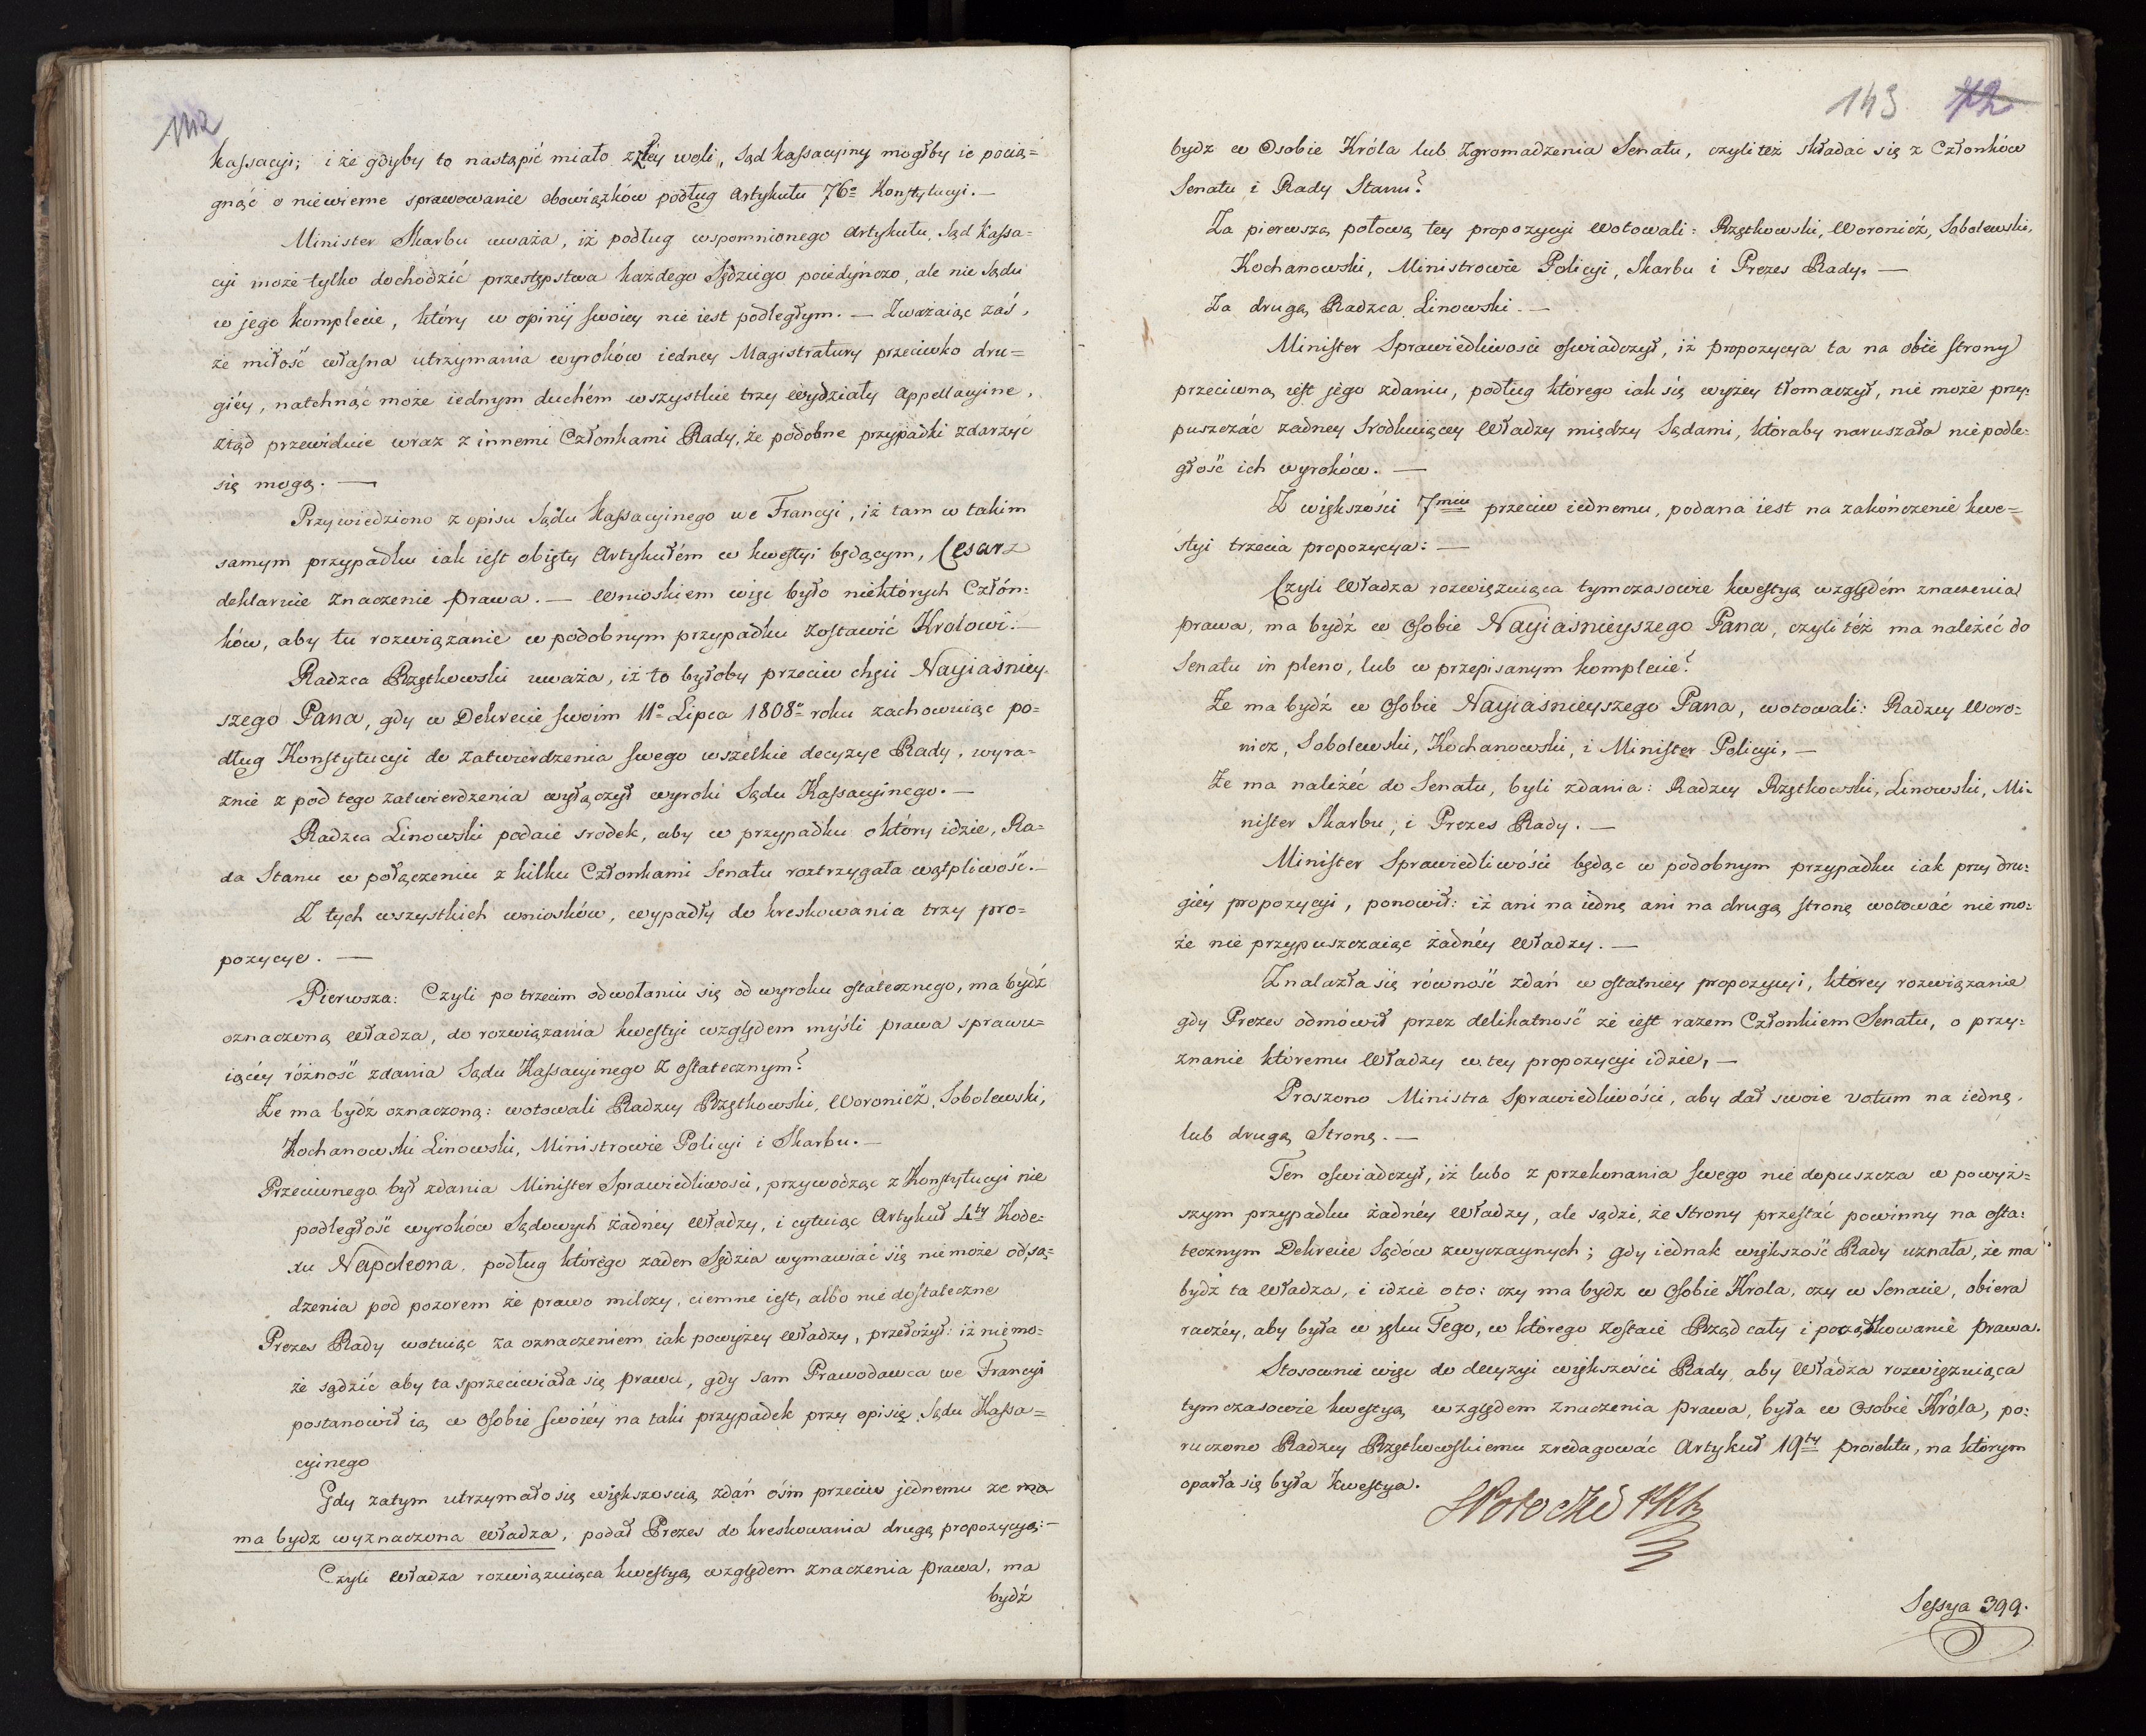 142
kassacyi; i że gdyby to nastąpić miało z złéy woli, Sąd kassacyiny mógłby ie pocią=
gnąć o niewierne sprawowanie obowiązków podług Artykułu 76o Konstytucyi. —
Minister Skarbu uważa, iż podług wspomnionego Artykułu, Sąd Kassa=
cyi może tylko dochodzić przestępstwa każdego Sędziego poiedyńczo, ale nie Sądu
w jego komplecie, który w opinij swoiey nie iest podległym. — Zważaiąc zaś,
że miłość własna utrzymania wyroków iedney Magistratury przeciwko dru=
giéy, natchnąć może iednym duchém wszystkie trzy wydziały Appellacyine,
ztąd przewiduie wraz z innemi Członkami Rady, że podobne przypadki zdarzyć
się mogą. —
Przywiedziono z opisu Sądu Kassacyinego we Francyi, iż tam w takim
samym przypadku iak iest obięty Artykułém w kwestyi będącym, Cesarz
deklaruie znaczenie prawa. — Wnioskiem więc było niektórych Człon=
ków, aby tu rozwiązanie w podobnym przypadku zostawić Krolowi. —
Radzca Rzętkowski uważa, iż to byłoby przeciw chęci Nayiaśniey=
szego Pana, gdy w Dekrecie swoim 11o Lipca 1808o roku zachowuiąc po=
dług Konstytucyi do zatwierdzenia swego wszelkie decyzye Rady, wyra=
znie z pod tego zatwierdzenia wyłączył wyroki Sądu Kassacyinego. —
Radzca Linowski podaie srodek, aby w przypadku o który idzie, Ra=
da Stanu w połączeniu z kilku Członkami Senatu roztrzygała wątpliwość. —
Z tych wszystkich wniosków, wypadły do kreskowania trzy pro=
pozycye. —
Pierwsza: Czyli po trzecim odwołaniu się od wyroku ostatecznego, ma bydź
oznaczoną Władza, do rozwiązania kwestyi względem myśli prawa sprawu=
iącéy różność zdania Sądu Kassacyinego z ostatecznym?
Że ma bydź oznaczoną: wotowali Radzcy Rzętkowski, Woronicz, Sobolewski,
Kochanowski Linowski, Ministrowie Policyi i Skarbu. —
Przeciwnego był zdania Minister Sprawiedliwosci, przywodząc z Konstytucyi nie
podległość wyroków Sądowych żadnéy Władzy, i cytuiąc Artykuł 4ty Kode=
xu Napoleona, podług którego zaden Sędzia wymawiać się nie może od są=
dzenia pod pozorem że prawo milczy, ciemne iest, albo nie dostateczne
Prezes Rady wotuiąc za oznaczeniem iak powyżey Władzy, przełożył: iż nie mo=
że sądzić aby ta sprzeciwiała się prawu, gdy sam Prawodawca we Francyi
postanowił ią w osobie swoiéy na taki przypadek przy opisie Sądu Kassa=
cyinego
Gdy zatym utrzymało się większoscią zdań ośm przeciw jednemu ze ma
ma bydz wyznaczona Władza, podał Prezes do kreskowania drugą propozycyą: —
Czyli Władza rozwiązuiąca kwestyą względem znaczenia prawa, ma
bydź
143 72
bydz w Osobie Króla lub Zgromadzenia Senatu, czyli też składać się z Członków
Senatu i Rady Stanu?
Za pierwszą połową tey propozycyi wotowali: Rzętkowski, Woronicz, Sobolewski,
Kochanowski, Ministrowie Policyi, Skarbu i Prezes Rady. —
Za drugą Radzca Linowski. —
Minister Sprawiedliwości oswiadczył, iż propozycya ta na obie strony
przeciwną iest jego zdaniu, podług którego iak się wyżey tłomaczył, nie może przy=
puszczać zadney srodkuiącey Władzy między Sądami, któraby naruszała niepodle=
głość ich wyroków. —
Z większości 7miu przeciw iednemu, podana iest na zakończenie kwe=
styi trzecia propozycya: —
Czyli Władza rozwięzuiąca tymczasowie kwestyą względém znaczenia
prawa, ma bydź w Osobie Nayiasnieyszego Pana, czyli téż ma należéć do
Senatu in pleno, lub w przepisanym komplecie?
Że ma bydź w Osobie Nayiasnieyszego Pana, wotowali: Radzcy Woro=
nicz, Sobolewski, Kochanowski, i Minister Policyi, —
Że ma należéć do Senatu, byli zdania: Radzcy Rzętkowski, Linowski, Mi=
nister Skarbu, i Prezes Rady. —
Minister Sprawiedliwości będąc w podobnym przypadku iak przy dru=
giéy propozycyi, ponowił: iż ani na iednę ani na drugą stronę wotować nie mo=
że nie przypuszczaiąc żadnéy Władzy. —
Znalazła się równość zdań w ostatniey propozycyi, którey rozwiązanie
gdy Prezes odmówił przez delikatność że iest razem Członkiem Senatu, o przy=
znanie któremu Władzy w tey propozycyi idzie, —
Proszono Ministra Sprawiedliwości, aby dał swoie votum na iednę,
lub drugą Stronę. —
Ten oswiadczył, iż lubo z przekonania swego nie dopuszcza w powyż=
szym przypadku żadnéy Władzy, ale sądzi, że Strony przestać powinny na osta=
tecznym Dekrecie Sądów zwyczaynych; gdy iednak większość Rady uznała, że ma
bydź ta Władza, i idzie oto: czy ma bydz w Osobie Krola, czy w Senacie, obiera
raczéy, aby była w ręku Tego, w którego zostaie Rząd cały i początkowanie prawa.
Stosownie więc do decyzyi większości Rady, aby Władza rozwięzuiąca
tymczasowie kwestyą względem znaczenia prawa, była w Osobie Króla, po=
ruczono Radzcy Rzętkowskiemu zredagować Artykuł 19ty proiektu, na którym
oparła się była kwestya.
SPotocki
Sessya 399.